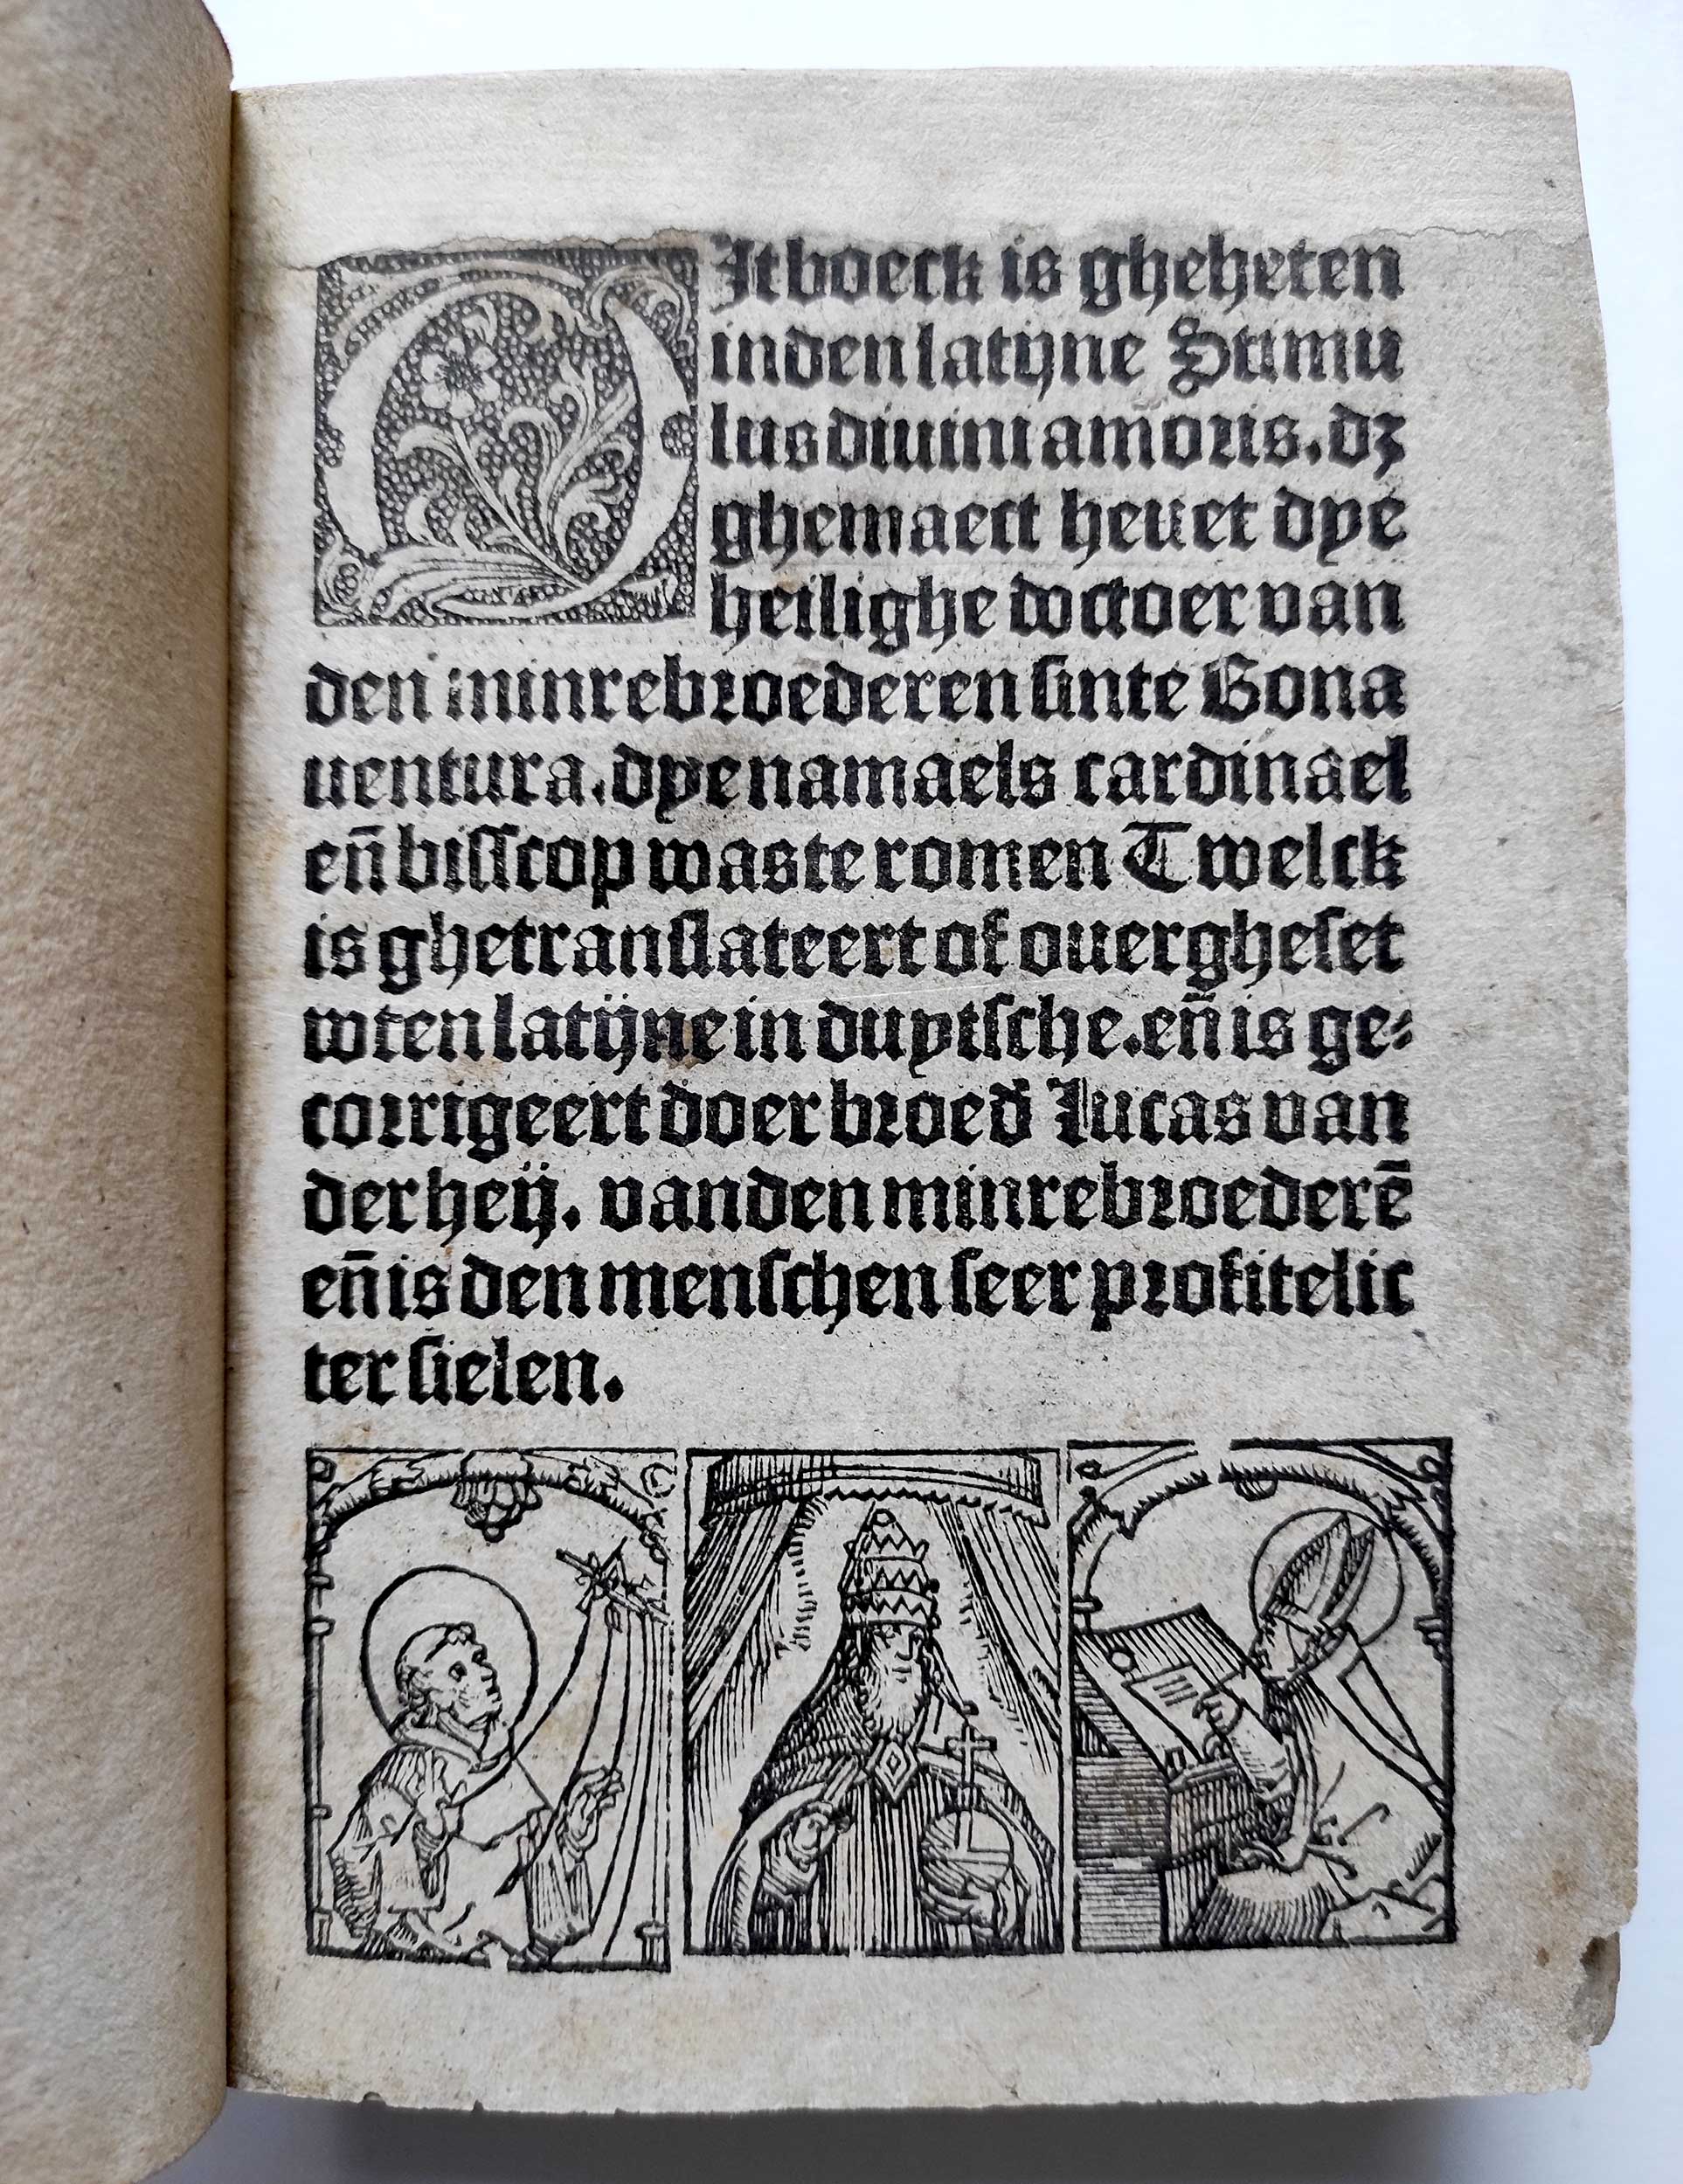 DIt boeck is gheheten
inden latijne Stimu
lus diuini amoris. dz
ghemaect heuet dye
heilighe doctoer van
den minrebroederen sinte Bona
uentura. dye namaels cardinael
en̄ bisscop was te romen Twelck
is ghetranslateert of ouergheset
wten latijne in duytsche. en̄ is ge⸗
corrigeert doer broed̄ Lucas van
der heij. vanden minrebroederē
en̄ is den menschen seer profitelic
ter sielen.